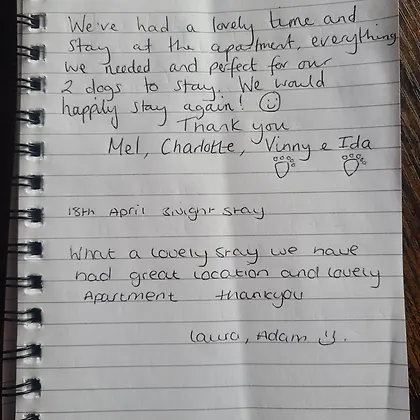 We've had a lovely time and
stay at the apartment, everything
we needed and perfect for our
2 dogs to stay. We would
happily stay again! ☺
Thank you
Mel, Charlotte, Vinny & Ida
18th April 3night stay
What a lovely stay we have
had great location and lovely
Apartment thankyou
Laura, Adam :).